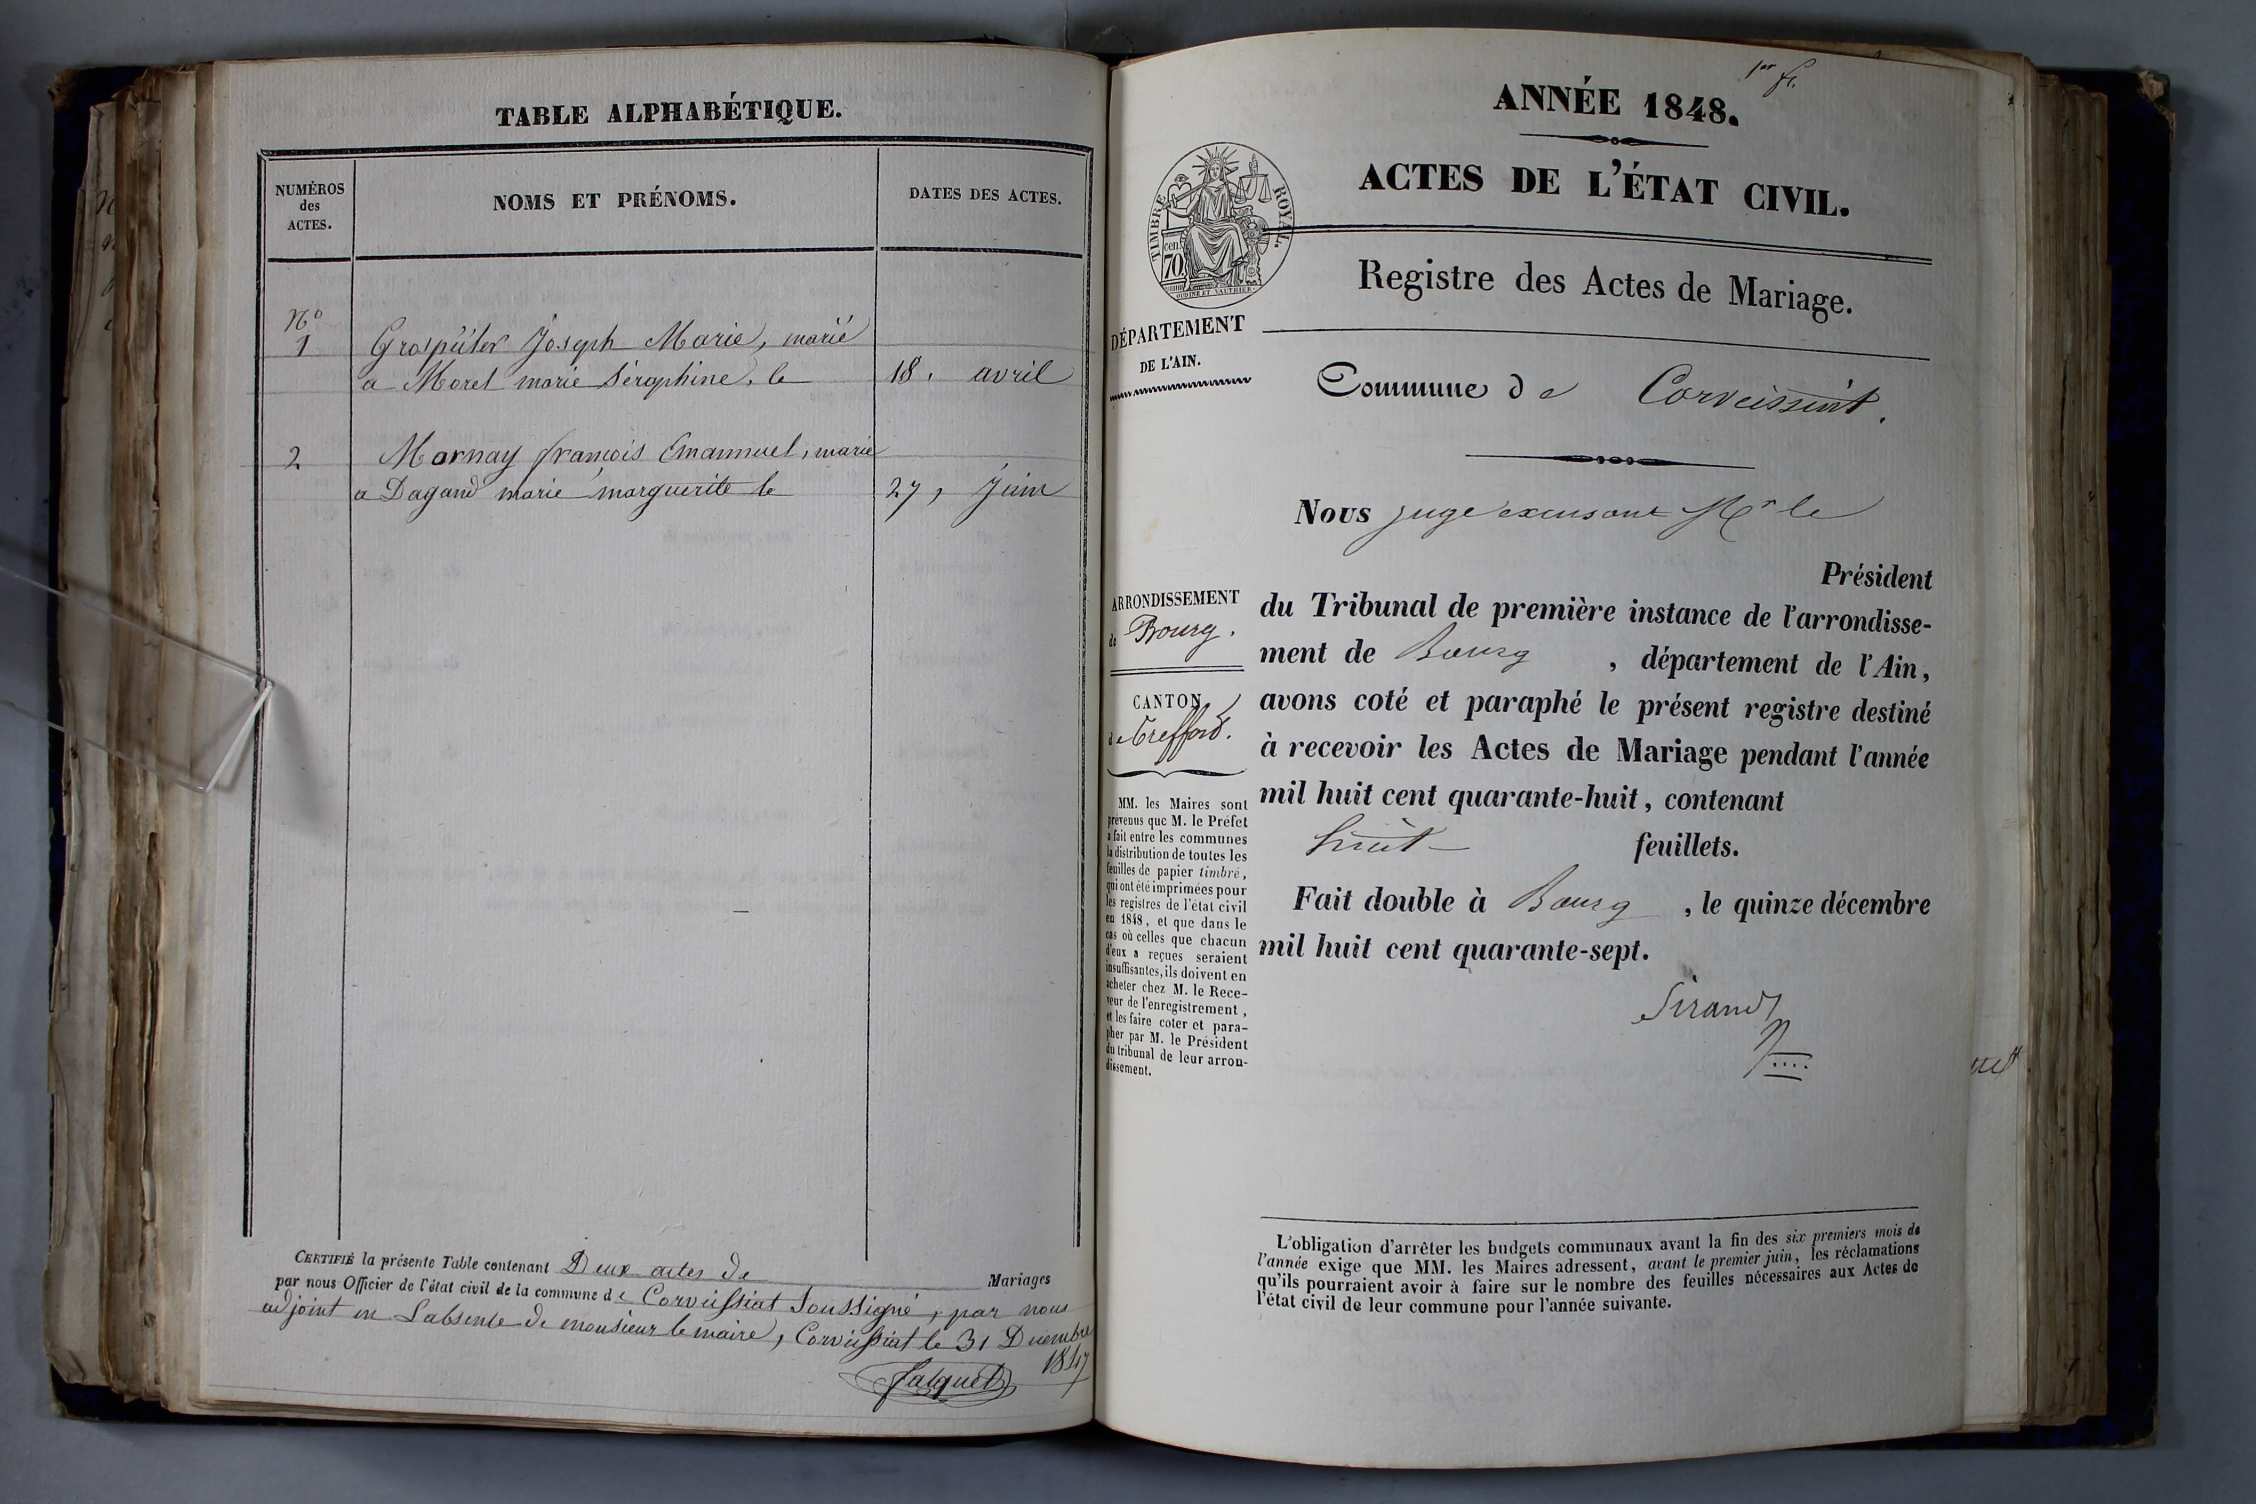 TABLE ALPHABÉTIQUE.
NUMÉROS
des
ACTES.
NOMS ET PRÉNOMS.
DATES DES ACTES.
No
1
Grospiiler Joseph Marie, marié
a Morel marie Séraphine, le
18. avril
2
Marnay francois Emannuel, marie
a Dagand marie marguerite le
27, Juin
CERTIFIÉ la présente Table contenant Deux actes de Mariages
par nous Officier de l'état civil de la commune de Corveissiat Soussigné, par nous
adjoint en Labsente de monsieur le maire, Corveissiat le 31 Décembre
1847
Jacquet
1er f.
ANNÉE 1848.
ACTES DE L'ÉTAT CIVIL.
TIMBRE ROYAL.
cen.
70
OUDINE ET VAUTHIER
Registre des Actes de Mariage.
DÉPARTEMENT
DE L'AIN.
Commune de Corveissiat.
Nous juge excusant Mr le
Président
du Tribunal de première instance de l'arrondisse-
ment de Bourg, département de l'Ain,
avons coté et paraphé le présent registre destiné
à recevoir les Actes de Mariage pendant l'année
mil huit cent quarante-huit, contenant
huit feuillets.
Fait double à Bourg, le quinze décembre
mil huit cent quarante-sept.
Sirand
ARRONDISSEMENT
de Bourg.
CANTON
de Treffort.
MM. les Maires sont
prévenus que M. le Préfet
a fait entre les communes
la distribution de toutes les
feuilles de papier timbré,
qui ont été imprimées pour
les registres de l'état civil
en 1848, et que dans le
cas où celles que chacun
d'eux a reçues seraient
insuffisantes, ils doivent en
acheter chez M. le Rece-
veur de l'enregistrement,
et les faire coter et para-
pher par M. le Président
du tribunal de leur arron-
dissement.
L'obligation d'arrêter les budgets communaux avant la fin des six premiers mois de
l'année exige que MM. les Maires adressent, avant le premier juin, les réclamations
qu'ils pourraient avoir à faire sur le nombre des feuilles nécessaires aux Actes de
l'état civil de leur commune pour l'année suivante.